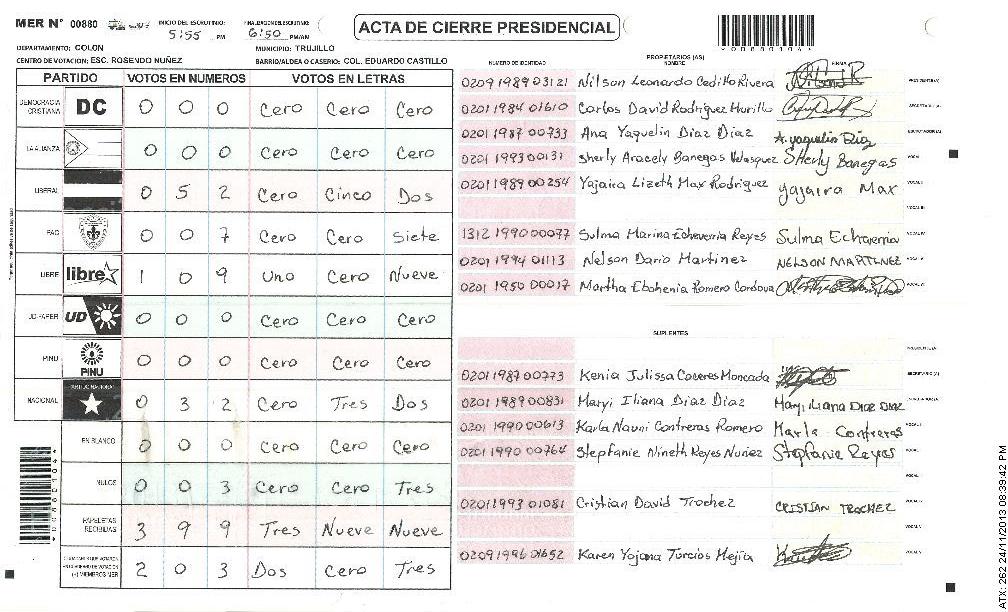 MER N° 00880
INICIO DEL ESCRUTINIO: 5:55 PM
FINALIZACION ESCRUTINIO: 6:50 PM/AM
ACTA DE CIERRE PRESIDENCIAL
*00880104*
DEPARTAMENTO: COLON MUNICIPIO: TRUJILLO
CENTRO DE VOTACION: ESC. ROSENDO NUÑEZ BARRIO/ALDEA O CASERIO: COL. EDUARDO CASTILLO
PARTIDO VOTOS EN NUMEROS VOTOS EN LETRAS
DEMOCRACIA CRISTIANA DC 0 0 0 Cero Cero Cero
LA ALIANZA 0 0 0 Cero Cero Cero
LIBERAL 0 5 2 Cero Cinco Dos
PAC 0 0 7 Cero Cero Siete
LIBRE libre 1 0 9 Uno Cero Nueve
UD-FAPER UD 0 0 0 Cero Cero Cero
PINU PINU 0 0 0 Cero Cero Cero
NACIONAL PARTIDO NACIONAL 0 3 2 Cero Tres Dos
EN BLANCO 0 0 0 Cero Cero Cero
NULOS 0 0 3 Cero Cero Tres
PAPELETAS RECIBIDAS 3 9 9 Tres Nueve Nueve
CIUDADANOS QUE VOTARON EN CUADERNO DE VOTACION (+) MIEMBROS MER 2 0 3 Dos Cero Tres
PROPIETARIOS (AS)
NUMERO DE IDENTIDAD NOMBRE FIRMA
0209 1989 03121 Nilson Leonardo Cedillo Rivera
0201 1984 01610 Carlos David Rodriguez Murillo
0201 1987 00733 Ana Yaquelin Diaz Diaz A. yaquelin Diaz
0201 1993 00131 Sherly Aracely Banegas Velasquez Sherly Banegas
0201 1989 00254 Yajaira Lizeth Max Rodriguez yajaira Max
1312 1990 00077 Sulma Marina Echeverria Reyes Sulma Echeverria
0201 1994 01113 Nelson Dario Martinez NELSON MARTINEZ
0201 1950 00017 Martha Ebohenia Romero Cordova
SUPLENTES
0201 1987 00773 Kenia Julissa Caceres Moncada
0201 1989 00831 Maryi Iliana Diaz Diaz Maryi Iliana Diaz Diaz
0201 1990 00613 Karla Nauni Contreras Romero Karla Contreras
0201 1990 00764 Stepfanie Nineth Reyes Nuñez Stepfanie Reyes
0201 1993 01081 Cristian David Trochez CRISTIAN TROCHEZ
0209 1996 01652 Karen Yojana Turcios Mejia
*00880104*
ATX: 262 24/11/2013 08:39:42 PM